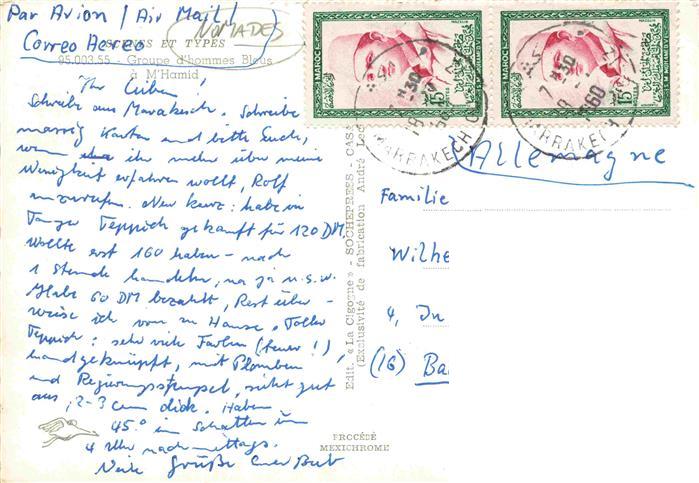 Par Avion / Air Mail /
Correo Aereo
NOMADES
SCÈNES ET TYPES
95.003.55 - Groupe d'hommes Bleus
à M'Hamid
Ihr Lieben!
Schreibe aus Marakesch. Schreibe
massig Karten und bitte Euch,
wenn ihr mehr über meine
Wenigkeit erfahren wollt, Rolf
anzurufen. Nur kurz: habe in
Tanger Teppich gekauft für 120 DM.
Wollte erst 160 haben - nach
1 Stunde handeln, na ja u.s.w.
Habe 60 DM bezahlt, Rest über-
weise ich von zu Hause. Toller
Teppich: sehr viele Farben (teuer!),
handgeknüpft, mit Plomben
und Regierungsstempel, sieht gut
aus, 2-3 cm dick. Haben
45° im Schatten um
4 Uhr nachmittags.
Viele Grüße Euer
Edit. « La Cigogne » - SOCHEPRESS - CASA
(Exclusivité de fabrication André
PROCÉDÉ
MEXICHROME
MAROC
15
MAROC
15
MARRAKECH
MARRAKECH
Allemagne
Familie
Wilhe
4, In
(16) Ba